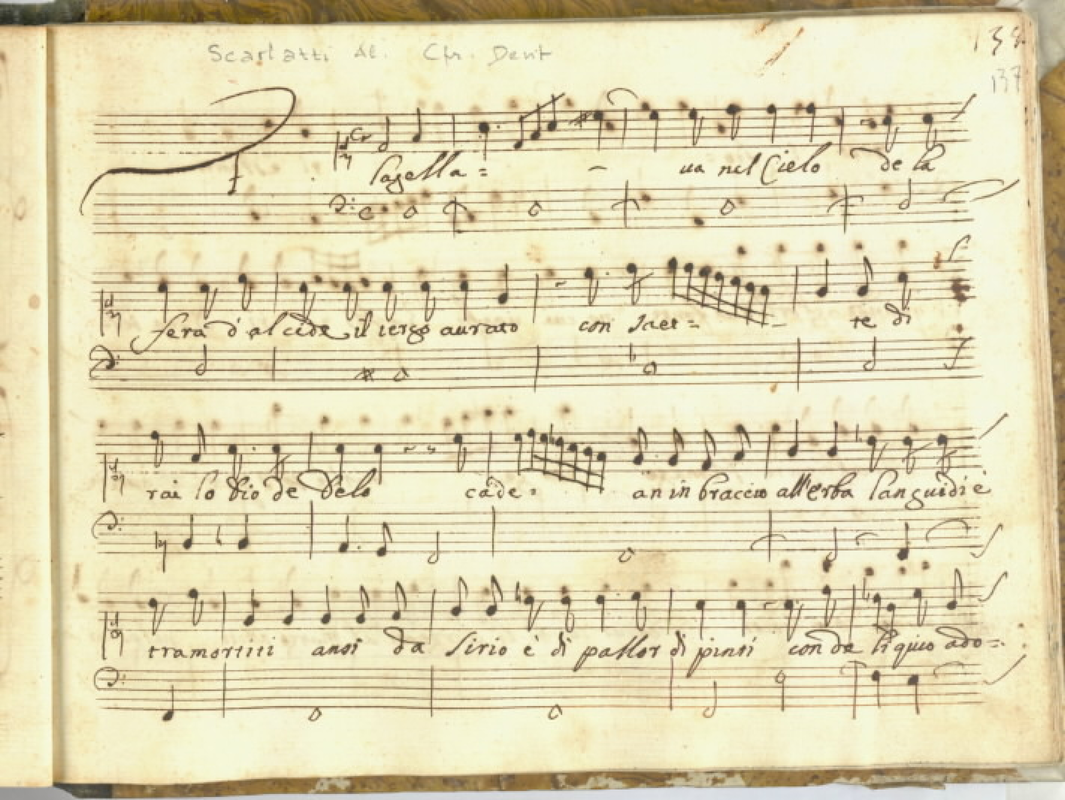 Scarlatti Al. Cfr. Dent
138
137
Flagella= ua nel Cielo de la
fera d'alcide il tergo aurato con saet= te di
rai lo Dio de Delo cade= an in braccio all'erba languidi è
tramortiti ansi da Sirio è di pallor di pinti con de liquio ado=